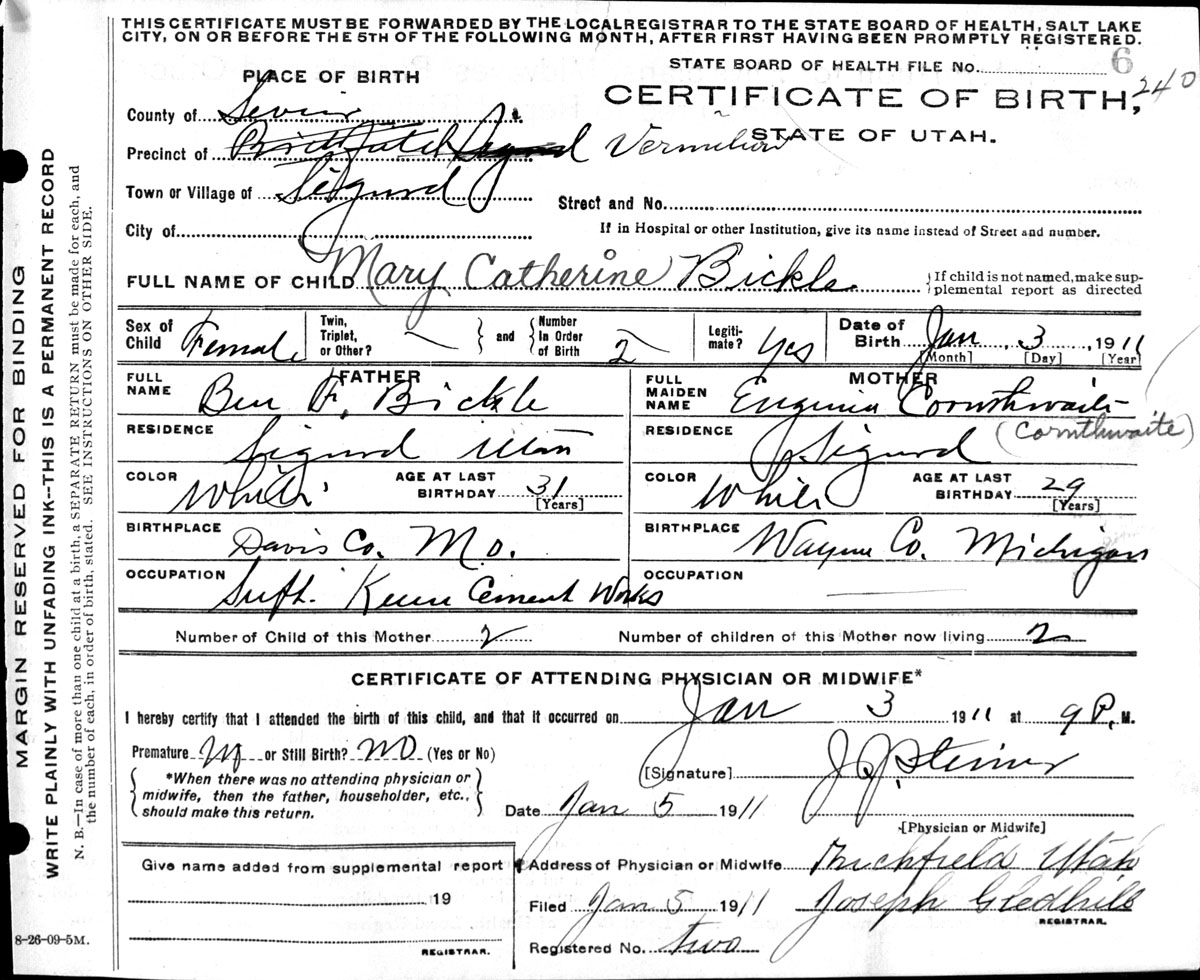 THIS CERTIFICATE MUST BE FORWARDED BY THE LOCAL REGISTRAR TO THE STATE BOARD OF HEALTH, SALT LAKE
CITY, ON OR BEFORE THE 5TH OF THE FOLLOWING MONTH, AFTER FIRST HAVING BEEN PROMPTLY REGISTERED.
STATE BOARD OF HEALTH FILE No. 6
240
PLACE OF BIRTH
CERTIFICATE OF BIRTH,
STATE OF UTAH.
County of Sevier
Precinct of Vermilion
Town or Village of Sigurd
Street and No.
City of
If in Hospital or other Institution, give its name instead of Street and number.
FULL NAME OF CHILD Mary Catherine Bickle
If child is not named, make supplemental report as directed
Sex of Child Female
Twin, Triplet, or Other?
and
Number in Order of Birth 2
Legitimate? Yes
Date of Birth Jan 3, 1911
[Month] [Day] [Year]
FATHER
FULL NAME Ben F. Bickle
MOTHER
FULL MAIDEN NAME Eugenia Cornthwaite
(Cornthwaite)
RESIDENCE Sigurd Utah
RESIDENCE Sigurd
COLOR White
AGE AT LAST BIRTHDAY 31
[Years]
COLOR White
AGE AT LAST BIRTHDAY 29
[Years]
BIRTHPLACE Davis Co. Mo.
BIRTHPLACE Wayne Co. Michigan
OCCUPATION Supt. Keene Cement Works
OCCUPATION
Number of Child of this Mother 2
Number of children of this Mother now living 2
CERTIFICATE OF ATTENDING PHYSICIAN OR MIDWIFE*
I hereby certify that I attended the birth of this child, and that it occurred on Jan 3 1911 at 9 P. M.
Premature or Still Birth? no (Yes or No)
*When there was no attending physician or
midwife, then the father, householder, etc.,
should make this return.
[Signature] J. J. Steiner
Date Jan 5 1911
[Physician or Midwife]
Give name added from supplemental report
19
REGISTRAR.
Address of Physician or Midwife Richfield Utah
Filed Jan 5 1911 Joseph Gledhill
REGISTRAR.
Registered No. two
8-26-09-5M.
MARGIN RESERVED FOR BINDING
WRITE PLAINLY WITH UNFADING INK--THIS IS A PERMANENT RECORD
N. B.—In case of more than one child at a birth, a SEPARATE RETURN must be made for each, and
the number of each, in order of birth, stated. SEE INSTRUCTIONS ON OTHER SIDE.